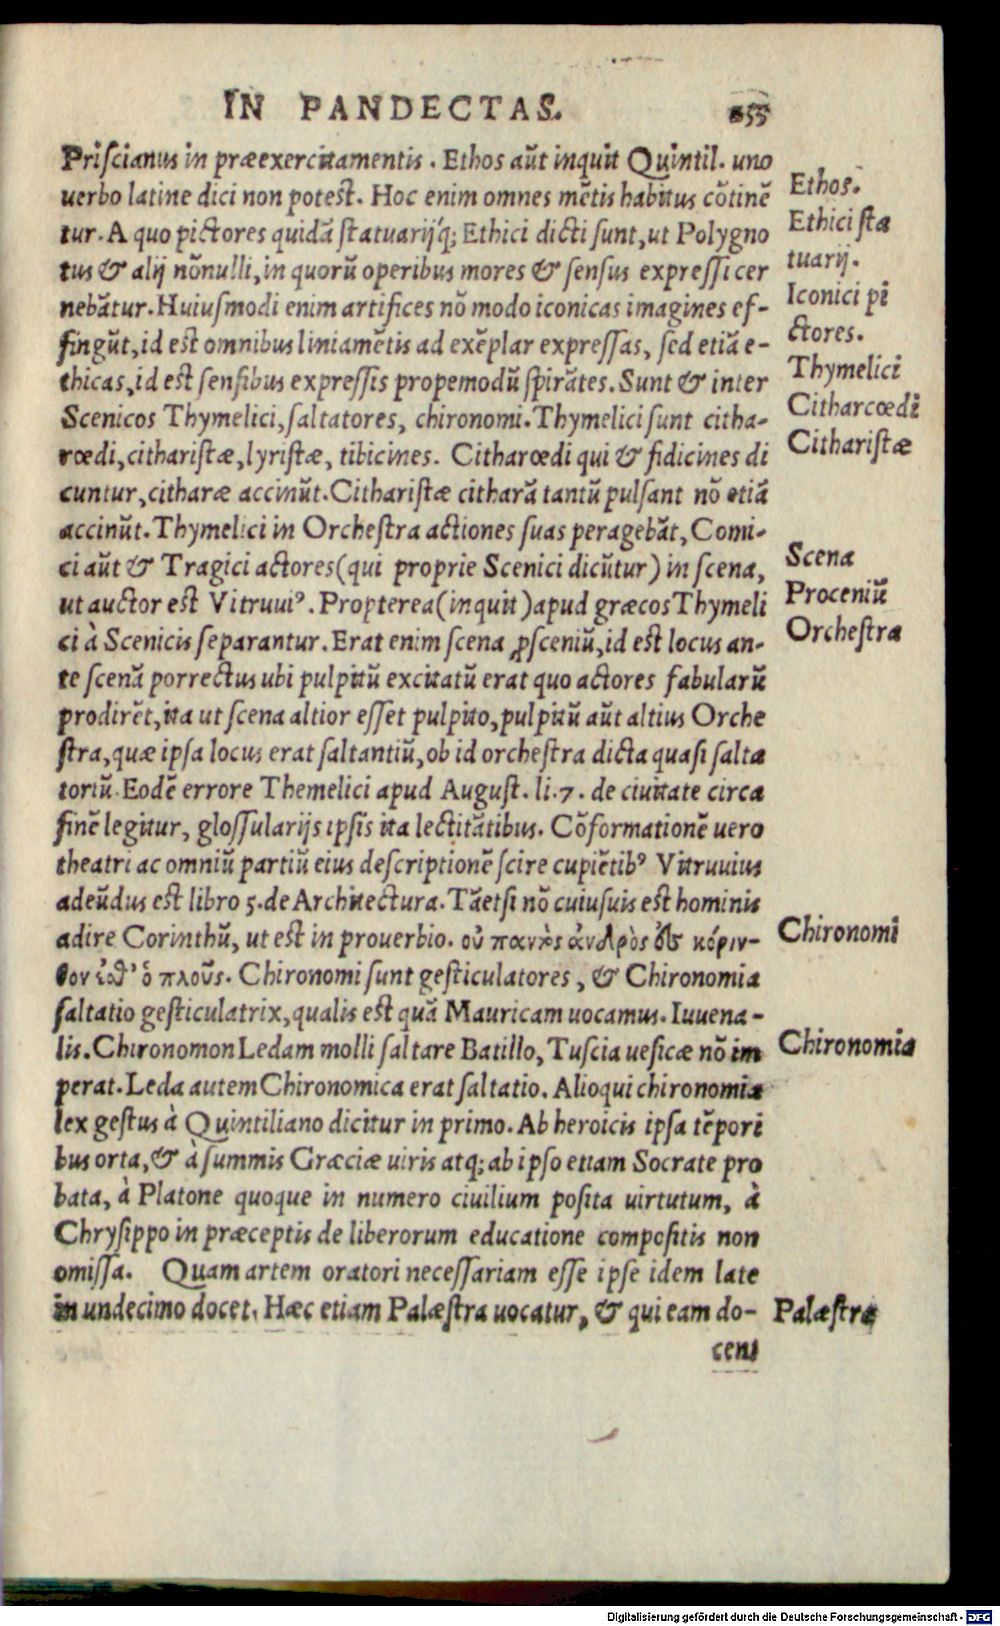 IN PANDECTAS. 255
Priscianus in præexercitamentis. Ethos aūt inquit Quintil. uno
uerbo latine dici non potest. Hoc enim omnes mētis habitus cōtinē
tur. A quo pictores quidā statuarijq; Ethici dicti sunt, ut Polygno
tus & alij nōnulli, in quorū operibus mores & sensus expressi cer
nebātur. Huiusmodi enim artifices nō modo iconicas imagines ef-
fingūt, id est omnibus liniamētis ad exēplar expressas, sed etiā e-
thicas, id est sensibus expressis propemodū spirātes. Sunt & inter
Scenicos Thymelici, saltatores, chironomi. Thymelici sunt citha-
rœdi, citharistæ, lyristæ, tibicines. Citharœdi qui & fidicines di
cuntur, citharæ accinūt. Citharistæ citharā tantū pulsant nō etiā
accinūt. Thymelici in Orchestra actiones suas peragebāt, Comi-
ci aūt & Tragici actores (qui proprie Scenici dicūtur) in scena,
ut auctor est Vitruuiꝰ. Propterea (inquit) apud græcos Thymeli
ci à Scenicis separantur. Erat enim scena ꝓsceniū, id est locus an-
te scenā porrectus ubi pulpitū excitatū erat quo actores fabularū
prodirēt, ita ut scena altior esset pulpito, pulpitū aūt altius Orche
stra, quæ ipsa locus erat saltantiū, ob id orchestra dicta quasi salta
toriū. Eodē errore Themelici apud August. li. 7. de ciuitate circa
finē legitur, glossularijs ipsis ita lectitātibus. Cōformationē uero
theatri ac omniū partiū eius descriptionē scire cupiētibꝰ Vitruuius
adeūdus est libro 5. de Architectura. Tāetsi nō cuiusuis est hominis
adire Corinthū, ut est in prouerbio. οὐ παντὸς ἀνδρὸς εἰς κόριν-
θον ἐσθ' ὁ πλοῦς. Chironomi sunt gesticulatores, & Chironomia
saltatio gesticulatrix, qualis est quā Mauricam uocamus. Iuuena-
lis. Chironomon Ledam molli saltare Batillo, Tuscia uesicæ nō im
perat. Leda autem Chironomica erat saltatio. Alioqui chironomia
lex gestus à Quintiliano dicitur in primo. Ab heroicis ipsa tēpori
bus orta, & à summis Græciæ uiris atq; ab ipso etiam Socrate pro
bata, à Platone quoque in numero ciuilium posita uirtutum, à
Chrysippo in præceptis de liberorum educatione compositis non
omissa. Quam artem oratori necessariam esse ipse idem late
in undecimo docet. Hæc etiam Palæstra uocatur, & qui eam do-
cent
Ethos.
Ethici sta
tuarij.
Iconici pi
ctores.
Thymelici
Citharœdi
Citharistæ
Scena
Proceniū
Orchestra
Chironomi
Chironomia
Palæstra
Digitalisierung gefördert durch die Deutsche Forschungsgemeinschaft - DFG